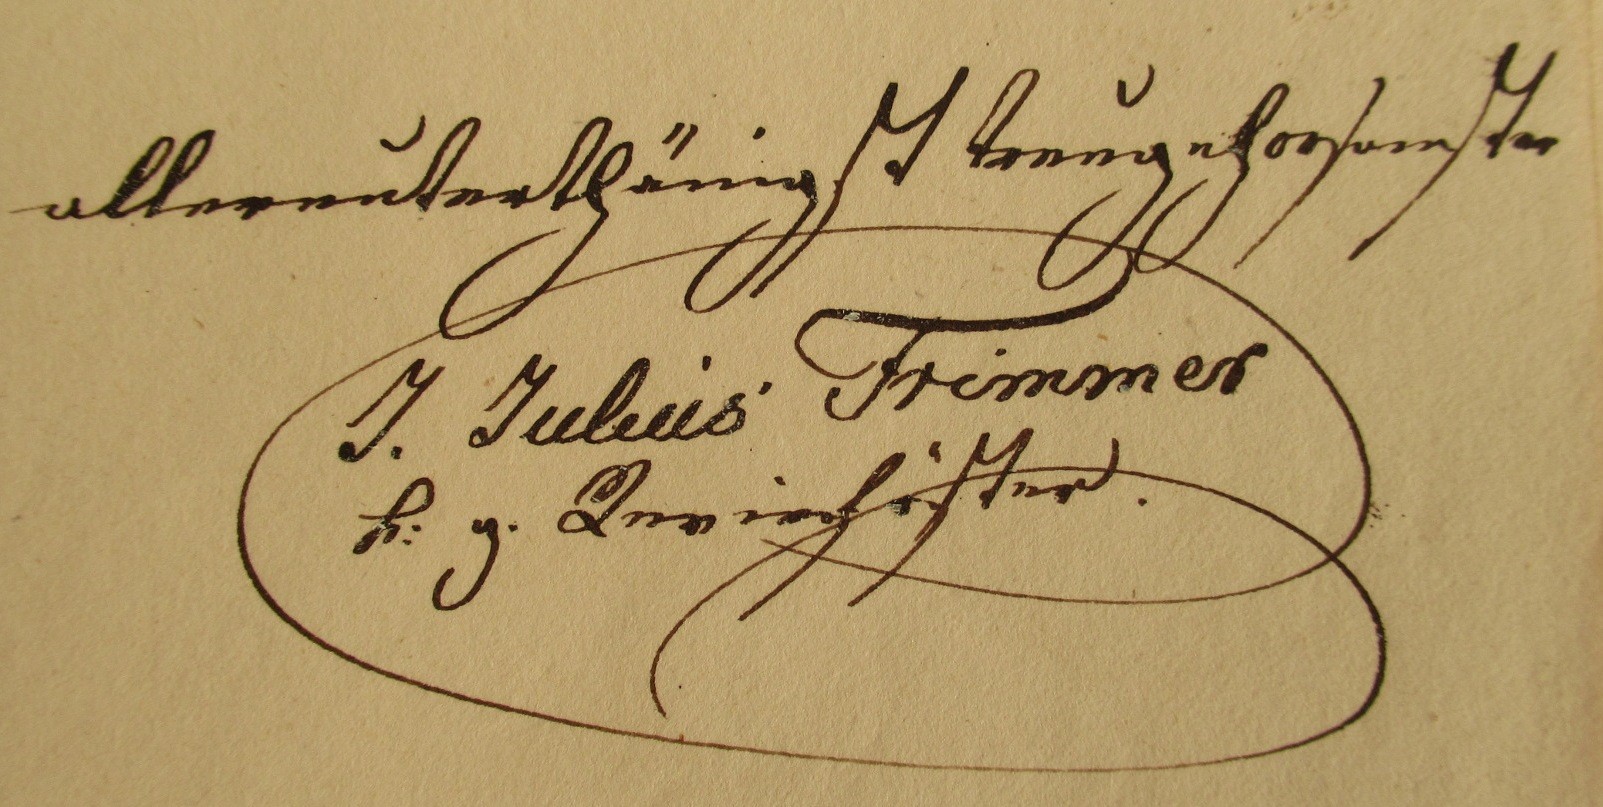 allerunterthänigst treugehorsamster
J. Julius Trimmer
k. g. Revierförster.